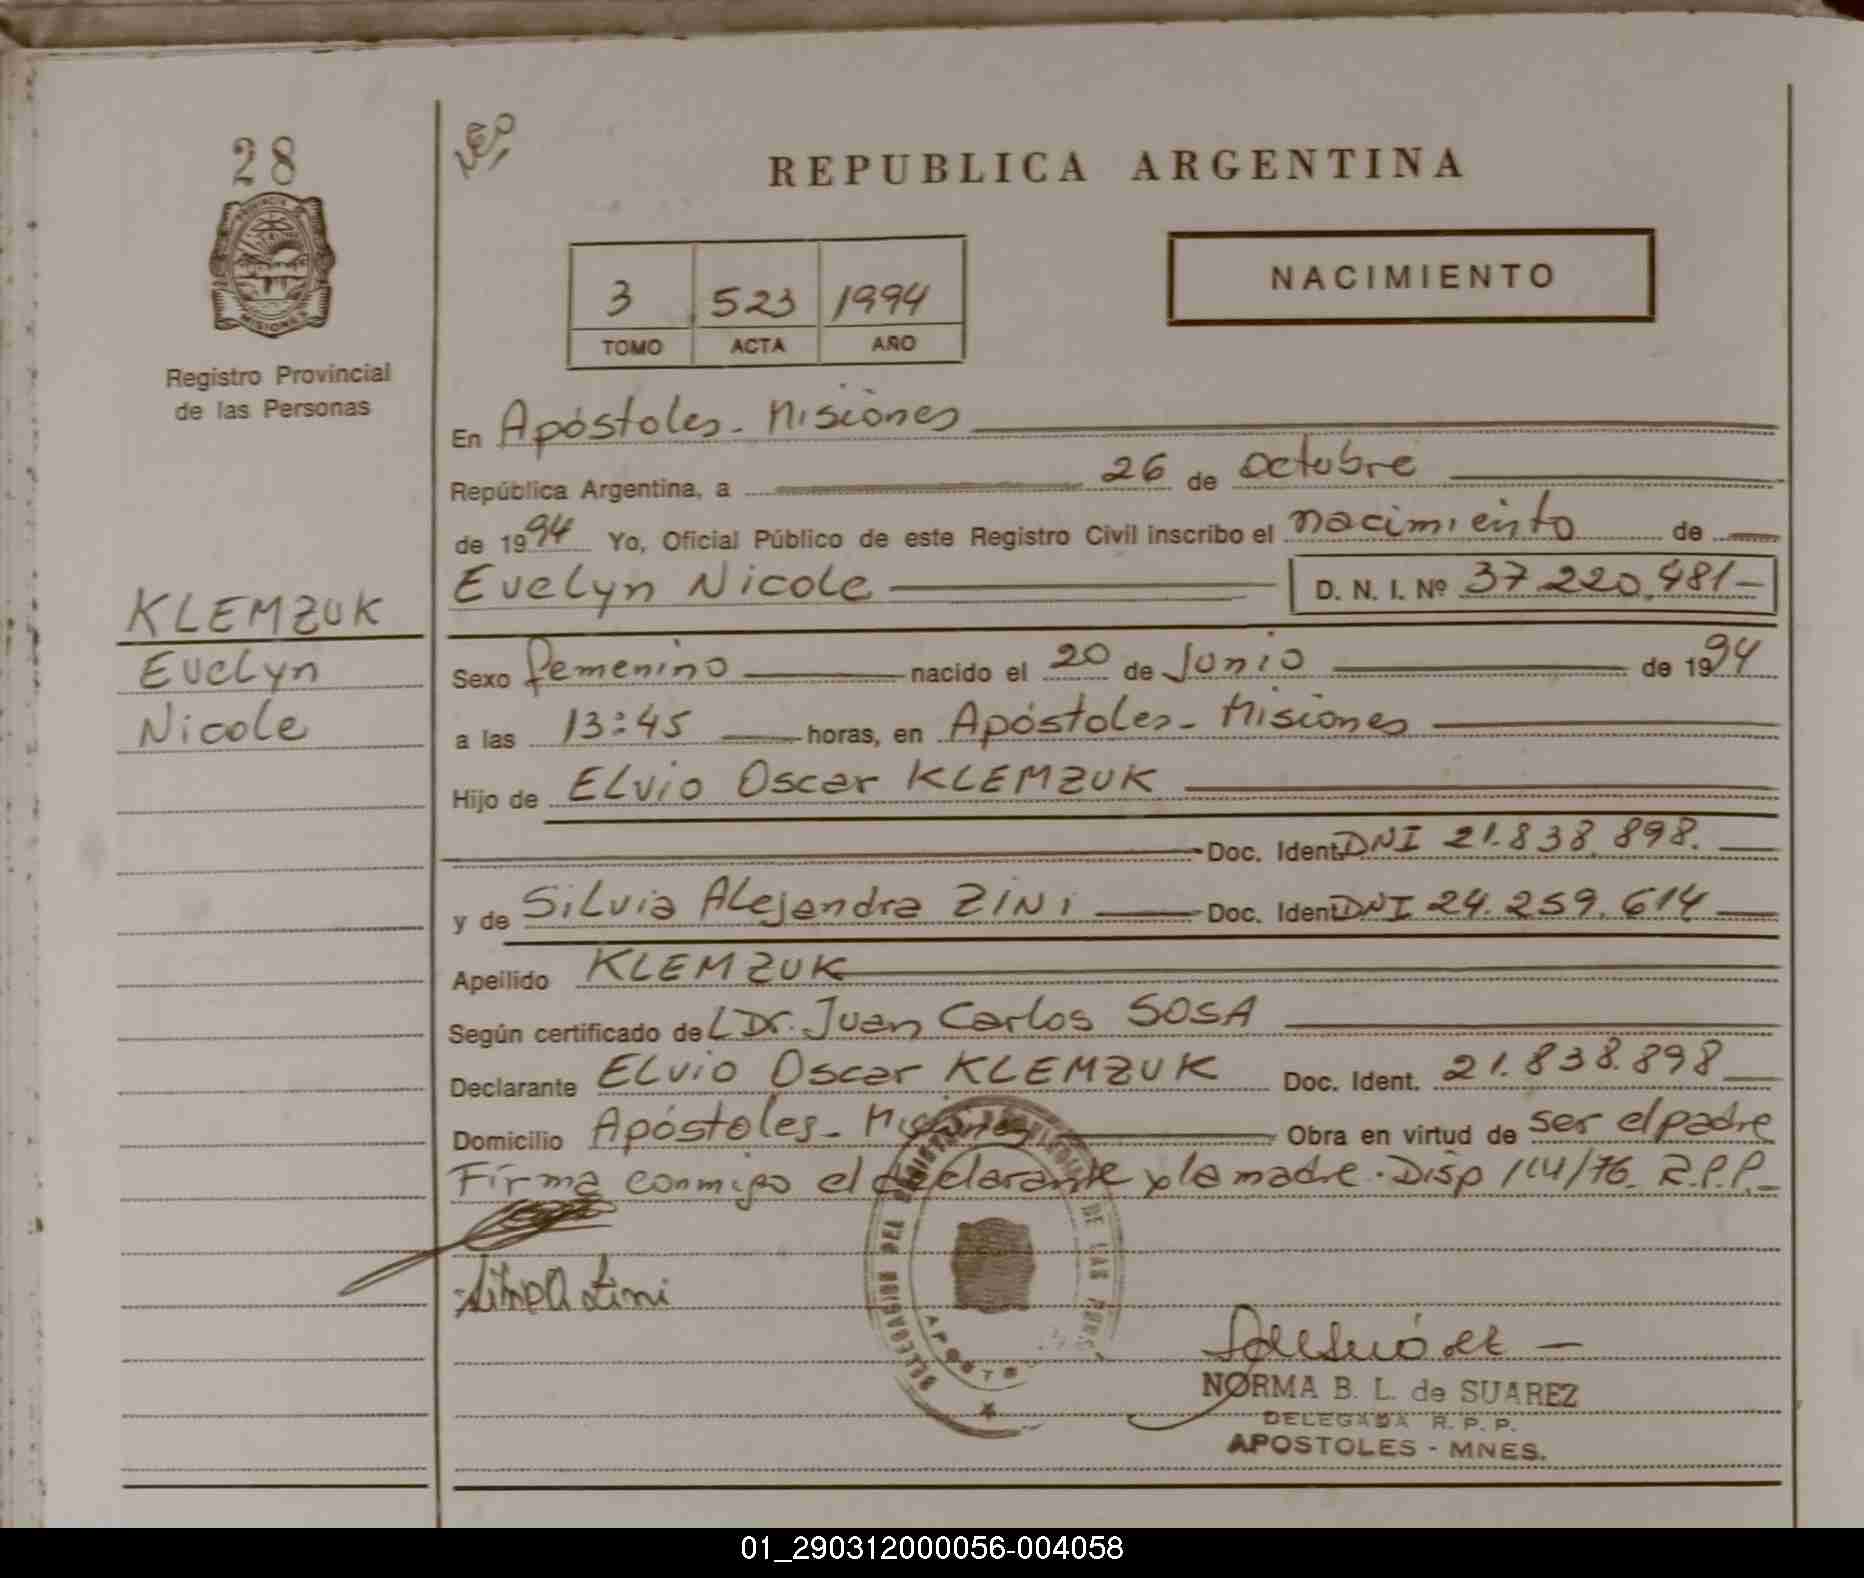 28
PROVINCIA DE
MISIONES
Registro Provincial
de las Personas
KLEMZUK
Evelyn
Nicole
REPUBLICA ARGENTINA
3 523 1994
TOMO ACTA AÑO
NACIMIENTO
En Apóstoles - Misiones
República Argentina, a 26 de octubre
de 1994 Yo, Oficial Público de este Registro Civil inscribo el nacimiento de
Evelyn Nicole D. N. I. Nº 37.220.481-
Sexo femenino nacido el 20 de Junio de 1994
a las 13:45 horas, en Apóstoles - Misiones
Hijo de ELvio Oscar KLEMZUK
Doc. Ident. DNI 21.838.898.
y de SiLvia ALejandra ZINi Doc. Ident. DNI 24.259.614
Apellido KLEMZUK
Según certificado de L Dr. Juan Carlos SOSA
Declarante ELvio Oscar KLEMZUK Doc. Ident. 21.838.898
Domicilio Apóstoles - Misiones Obra en virtud de ser el padre
Firma conmigo el declarante y la madre. Disp 114/76 R.P.P.-
DELEGACION DEL REGISTRO PROVINCIAL DE LAS PERS
APOSTO
NORMA B. L. de SUAREZ
DELEGADA R. P. P.
APOSTOLES - MNES.
01_290312000056-004058